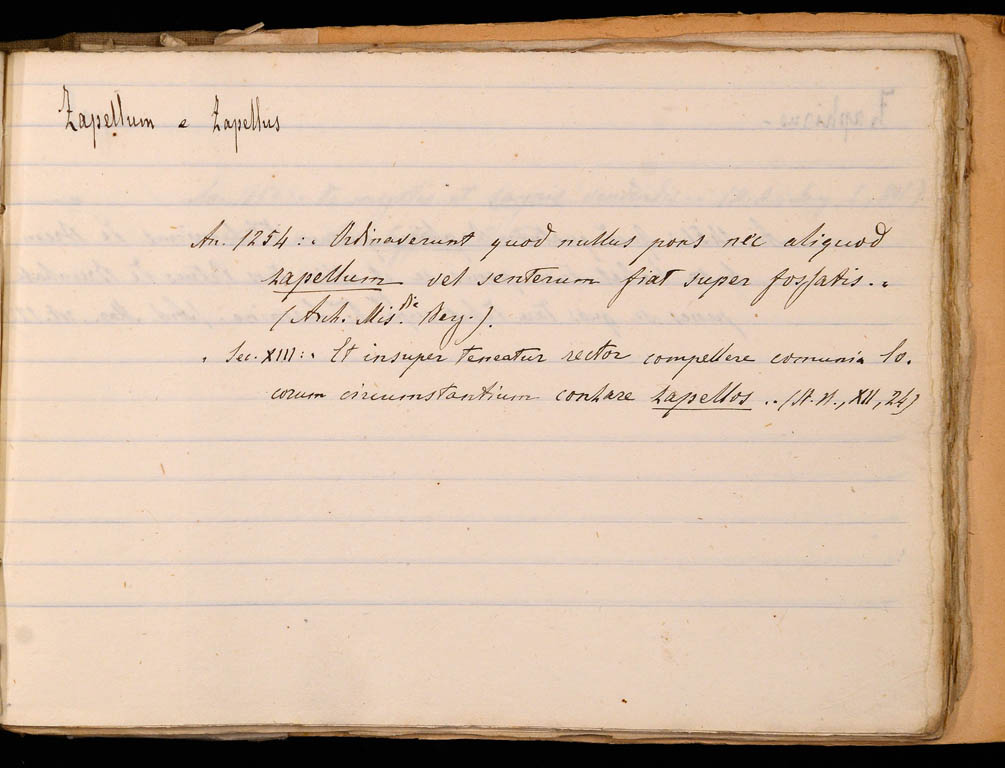 Zapellum e Zapellus
An. 1254: „ Ordinaverunt quod nullus pons nec aliquod
zapellum vel senterum fiat super fossatis. „
(Arch. Mis.die Berg.).
„ Sec. XIII: „ Et insuper teneatur rector compellere comunia lo-
corum circumstantium conzare zapellos „. (St. N., XII, 24)